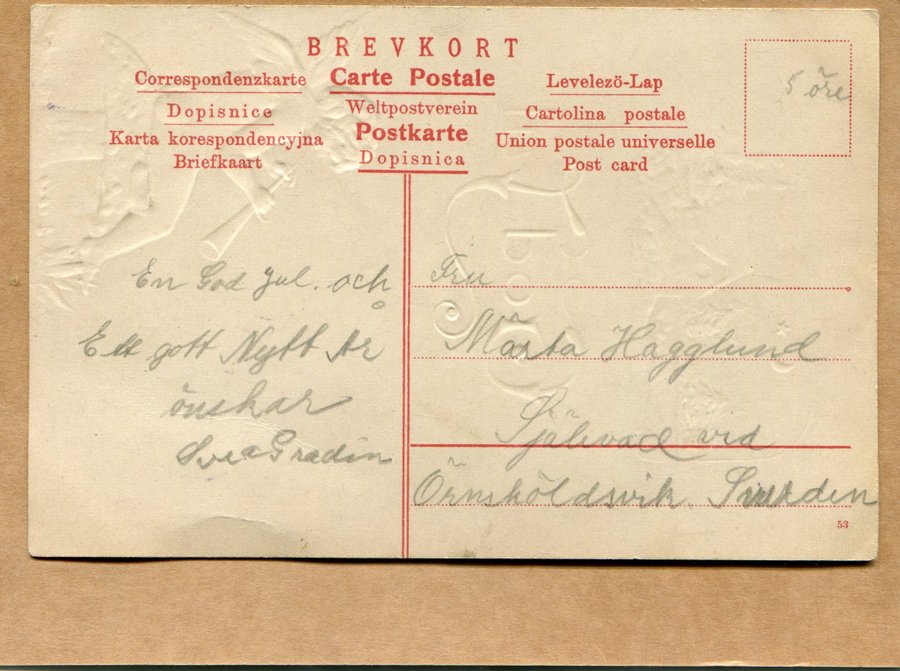 BREVKORT
Correspondenzkarte Carte Postale Levelezö-Lap
Dopisnice Weltpostverein Cartolina postale
Karta korespondencyjna Postkarte Union postale universelle
Briefkaart Dopisnica Post card
5 öre
En God Jul. och
Ett gott Nytt År
önskar
Svea Gradin
Fru
Märta Hägglund
Själevad vid
Örnsköldsvik. Sweden
53